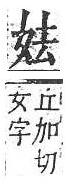 丘加切
女字